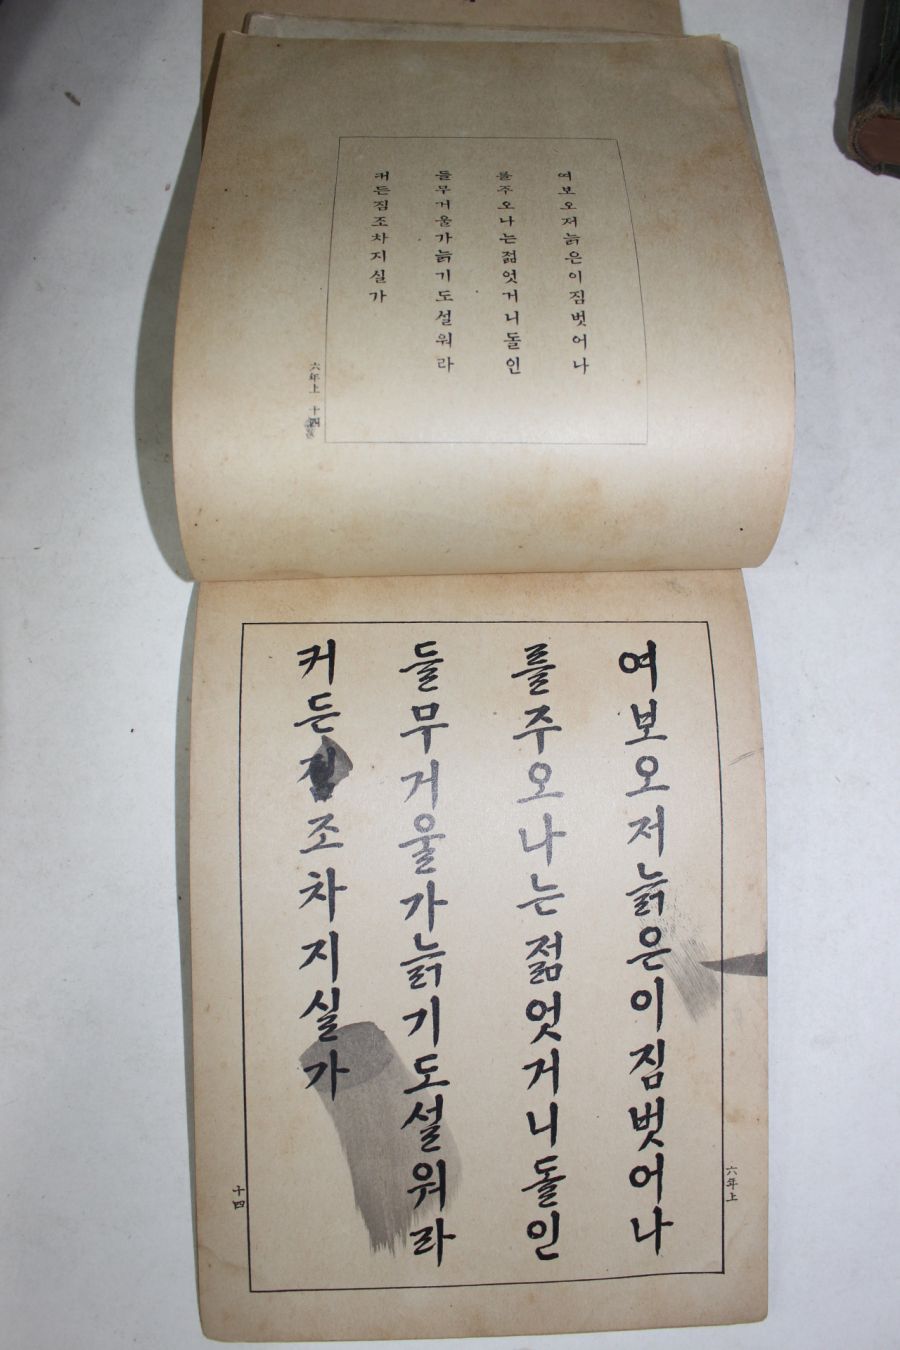 여보오저늙은이짐벗어나
를주오나는젊엇거니돌인
들무거울가늙기도설워라
커든짐조차지실가
六年上 十四
六年上
여보오저늙은이짐벗어나
를주오나는젊엇거니돌인
들무거울가늙기도설워라
커든짐조차지실가
十四